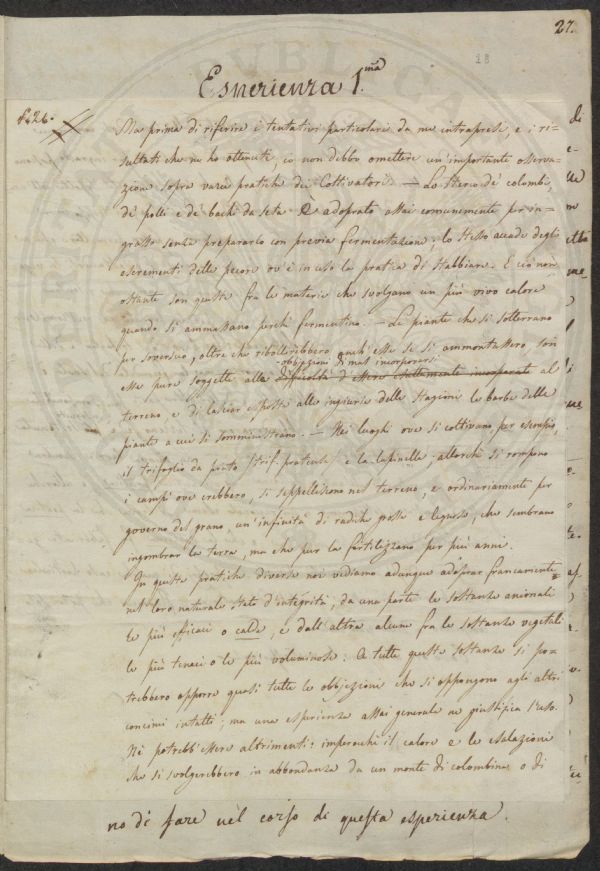 27.
18
Esperienza 1.ma
Ma prima di riferire i tentativi particolari da me intrapresi, e i ri=
sultati che ne ho ottenuti, io non debbo omettere un'importante osserva=
zione sopra varie pratiche dei Coltivatori. — Lo sterco de' colombi,
de' polli e de' bachi da seta è adoprato assai comunemente per in=
grasso senza prepararlo con previa fermentazione: lo stesso accade degli
escrementi delle pecore ov'è in uso la pratica di stabbiare. E ciò non
ostante son queste fra le materie che svolgano un più vivo calore
quando si ammassano perchè fermentino. — Le piante che si sotterrano
per soverscio, oltre che ribollirebbero anch'esse se si ammontassero, son
-obbiezioni di mal incorporarsi
esse pure soggette alle difficoltà d'essere esattamente incorporate al
terreno e di lasciar esposte alle ingiurie delle stagioni le barbe delle
piante a cui si somministrano. — Nei luoghi ove si coltivano per esempio,
il trifoglio da prato (trif. pratense) e la lupinella, allorchè si rompono
i campi ove crebbero, si seppelliscono nel terreno, e ordinariamente per
governo del grano un'infinità di radiche grosse e legnose, che sembrano
ingombrar la terra, ma che pur la fertilizzano per più anni.
In queste pratiche diverse noi vediamo adunque adoprar francamente
nel loro naturale stato d'integrità, da una parte le sostanze animali
le più efficaci o calde, e dall'altra alcune fra le sostanze vegetali
le più tenaci o le più voluminose. A tutte queste sostanze si po=
trebbero opporre quasi tutte le obbiezioni che si oppongono agli altri
concimi intatti; ma una esperienza assai generale ne giustifica l'uso.
Nè potrebb'essere altrimenti: imperocchè il calore e le esalazioni
che si svolgerebbero in abbondanza da un monte di colombina o di
no di fare nel corso di questa esperienza.